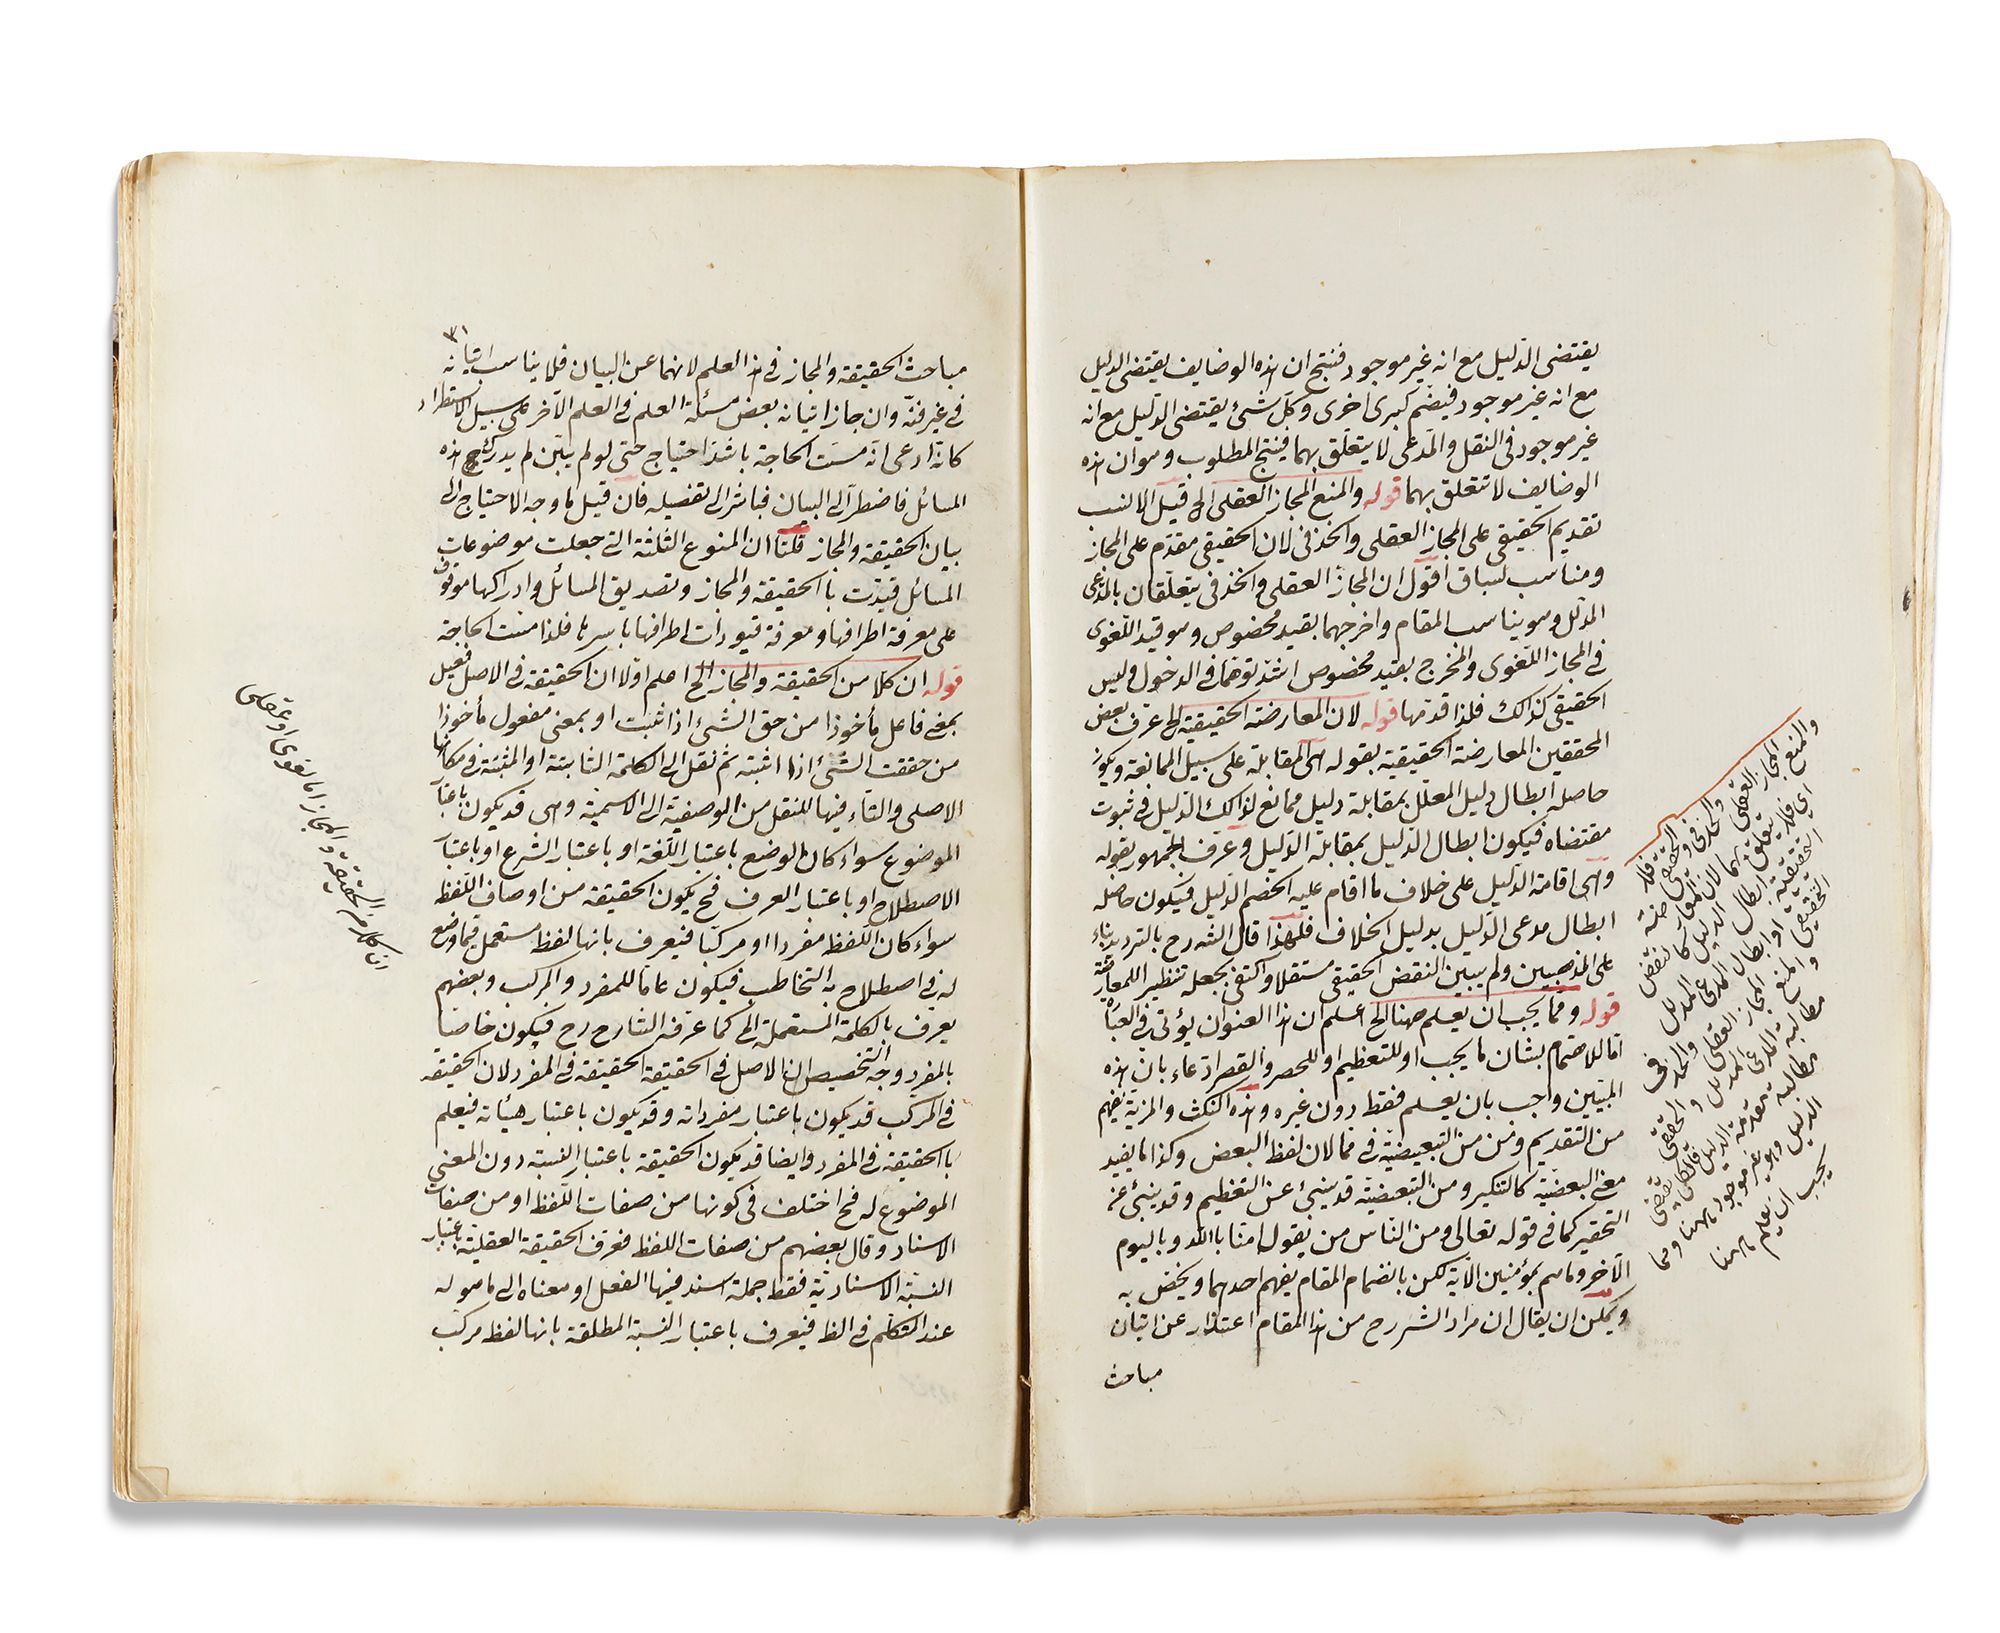 يقتضى الدليل مع انه غير موجود فنتج ان هذه الوضايف يقتضى الدليل
مع انه غير موجود فيضم كبرى اخرى وكل شئ يقتضى الدليل مع انه
غير موجود فى النقل والمدعى لا يتعلق بهما فينتج المطلوب وهو ان هذه
الوضايف لا تتعلق بهما قوله والمنع المجاز العقلى الخ قيل الانسب
تقديم الحقيقى على المجاز العقلى والحذفى لان الحقيقى مقدم على المجاز
ومناسب لسباق اقول ان المجاز العقلى والحذفى يتعلقان بالمدعى
المدلل وهو يناسب المقام واخرجهما بقيد مخصوص وهو قيد اللغوى
فى المجاز اللغوى والمخرج بقيد مخصوص اشد توهما فى الدخول وليس
الحقيقى كذالك فلذا قدمها قوله لان المعارضة الحقيقية الخ عرف بعض
المحققين المعارضة الحقيقية بقوله هى المقابلة على سبيل الممانعة ويكون
حاصله ابطال دليل المعلل بمقابلة دليل ممانع لذالك الدليل فى ثبوت
مقتضاه فيكون ابطال الدليل بمقابلة الدليل وعرف الجمهور بقوله
وهى اقامة الدليل على خلاف ما اقام عليه الخصم الدليل فيكون حاصله
ابطال مدعى الدليل بدليل الخلاف فلهذا قال الشرح بالترديد بناء
على المذهبين ولم يبين النقض الحقيقى مستقلا واكتفى بجعله تنظير اللمعارضة
قوله ومما يجب ان يعلم ههنا الخ اعلم ان هذا العنوان يؤتى فى العبا
اما للاهتمام بشان ما يجب او للتعظيم او للحصر والقصر ادعاء بان هذه
المبتيين واجب بان يعلم فقط دون غيره وهذه النكث والمزية يفهم
من التقديم ومن من التبعيضية فى مما لان لفظ البعض وكذا ما يفيد
معنى البعضية كالتنكير ومن التبعيضية قد ينبئ عن التعظيم وقد ينبئ عن
التحقير كما فى قوله تعالى ومن الناس من يقول امنا بالله وباليوم
الآخر وما هم بمؤمنين الآية لكن بانضمام المقام يفهم احدهما ويخص به
ويمكن ان يقال ان مراد الشرح من هذا المقام اعتذار عن اتيان
مباحث
والمنع المجاز العقلى والحذفى والحقيقى فلا
يتعلق بهما لان المعارضة
الحقيقية ابطال الدليل كا لنقض
الحقيقى او ابطال المدعى المدلل
والمنع المجاز العقلى والحذفى
مطالبة المدعى المدلل والحقيقى
مطالبة مقدمة الدليل فالكل يقتضى
الدليل وهو غير موجود ههنا ومما
يجب ان يعلم ههنا
٣١
مباحث الحقيقة والمجاز فى هذا العلم لانهما عن البيان فلا يناسب اتيانه
فى غير فنه وان جاز اتيانه بعض مسئلة العلم فى العلم الآخر على سبيل الاستطراد
كانه ادعى انه مست الحاجة باشد احتياج حتى لو لم يتبن لم يدرك هذه
المسائل فاضطر الى البيان فباشر الى تفصيله فان قيل ما وجه الاحتياج الى
بيان الحقيقة والمجاز قلنا ان المنوع الثلثة التى جعلت موضوعات
المسائل قيدت با الحقيقة والمجاز وتصديق المسائل وادراكها موقوف
على معرفة اطرافها ومعرفة قيودات اطرافها باسرها فلذا مست الحاجة
قوله ان كلا من الحقيقة والمجاز الخ اعلم اولا ان الحقيقة فى الاصل فعيل
بمعنى فاعل مأخوذا من حق الشئ اذا ثبت او بمعنى مفعول مأخوذا
من حققت الشئ اذا اثبته ثم نقل الى الكلمة الثابتة او المثبتة فى مكانها
الاصلى والتاء فيها للنقل من الوصفية الى الاسمية وهى قد يكون باعتبا
الموضوع سواء كان الوضع باعتبار اللغة او باعتبار الشرع او باعتبا
الاصطلاح او باعتبار العرف فح يكون الحقيقة من اوصاف اللفظ
سواء كان اللفظ مفردا او مركبا فيعرف بانها لفظ مستعمل فيما وضع
له فى اصطلاح به التخاطب فيكون عاما للمفرد والمركب وبعضهم
يعرف بالكلمة المستعملة الخ كما عرفه الشارح رح فيكون خاصا
بالمفرد وجه التخصيص ان الاصل فى الحقيقة الحقيقة فى المفرد لان الحقيقة
فى المركب قد يكون باعتبار مفرداته وقد يكون باعتبار هيئاته فيعلم
با الحقيقة فى المفرد وايضا قد يكون الحقيقة باعتبار النسبة دون المعنى
الموضوع له فح اختلف فى كونها من صفات اللفظ او من صفات
الاسناد وقال بعضهم من صفات اللفظ فعرف الحقيقة العقلية باعتبار
النسبة الاسنادية فقط جملة اسند فيها الفعل او معناه الى ما هو له
عند المتكلم فى الظ فيعرف باعتبار النسبة المطلقة بانها لفظ مركب
ان كلا من الحقيقة والمجاز اما لغوى او عقلى